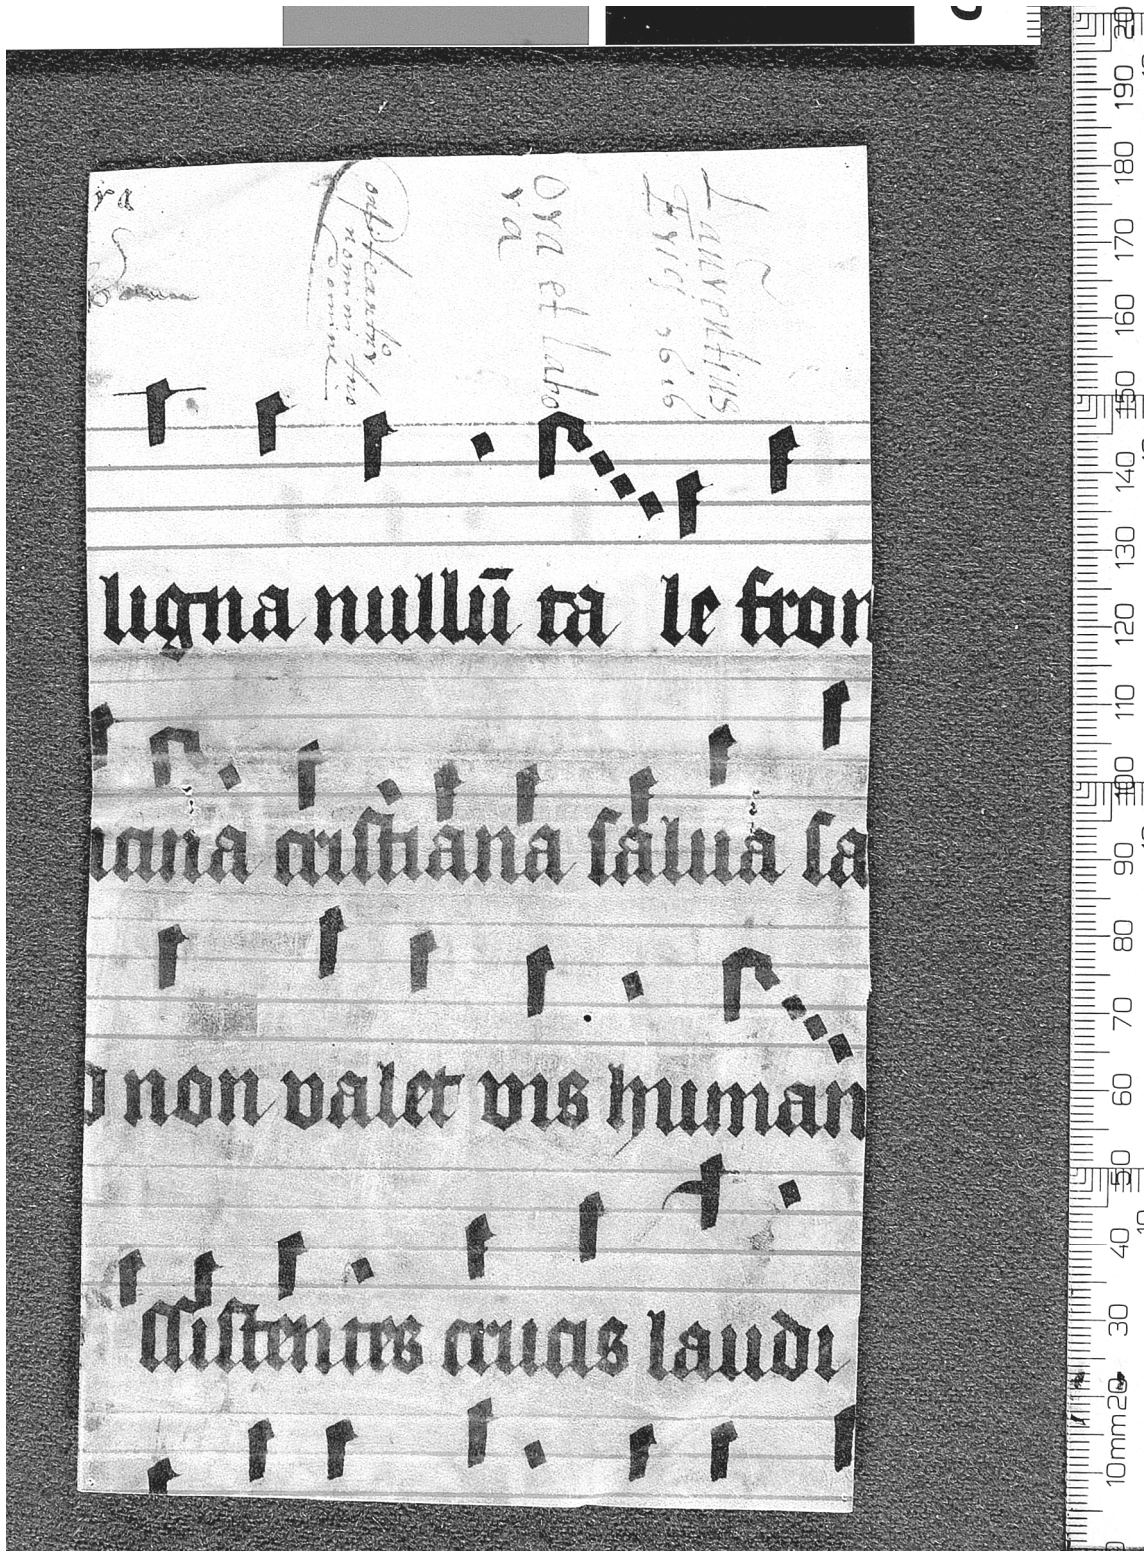 Laurentius
Ora et labo
ra
nomini tuo
Domine
ligna nullū ta le fron
icina cristiana salua sa
d non valet vis human
ssistentes crucis laudi
20
190
180
170
160
150
140
130
120
110
100
90
80
70
60
50
40
30
20
10mm
0